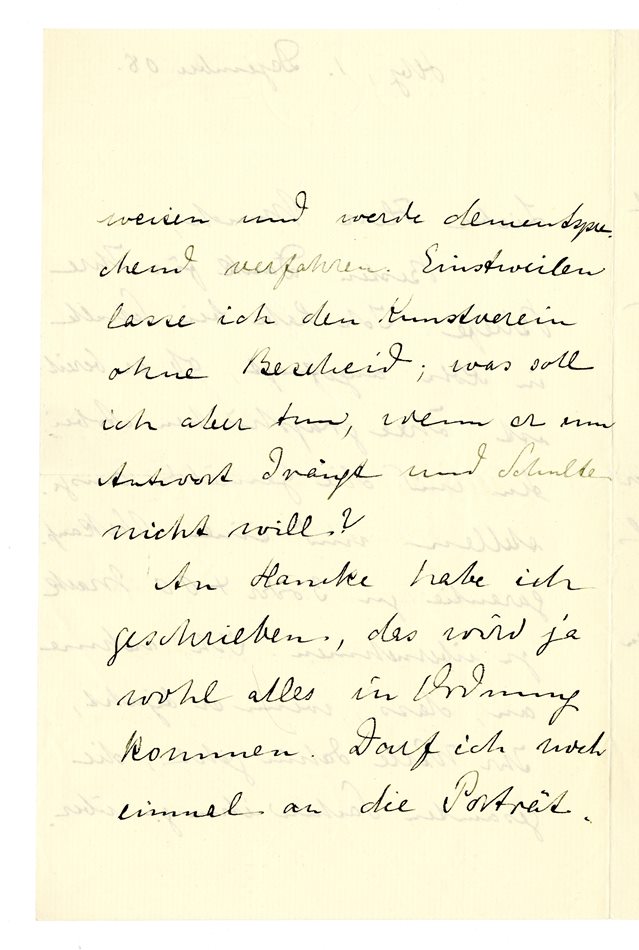 weisen und werde dementspre-
chend verfahren. Einstweilen
lasse ich den Kunstverein
ohne Bescheid; was soll
ich aber tun, wenn er um
Antwort drängt und Schulte
nicht will?
An Hancke habe ich
geschrieben, das wird ja
wohl alles in Ordnung
kommen. Darf ich noch
einmal an die Porträt-